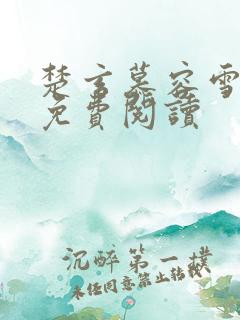 楚言慕容雪
免費閱讀
沉醉第一樸
未任同意禁止轉載